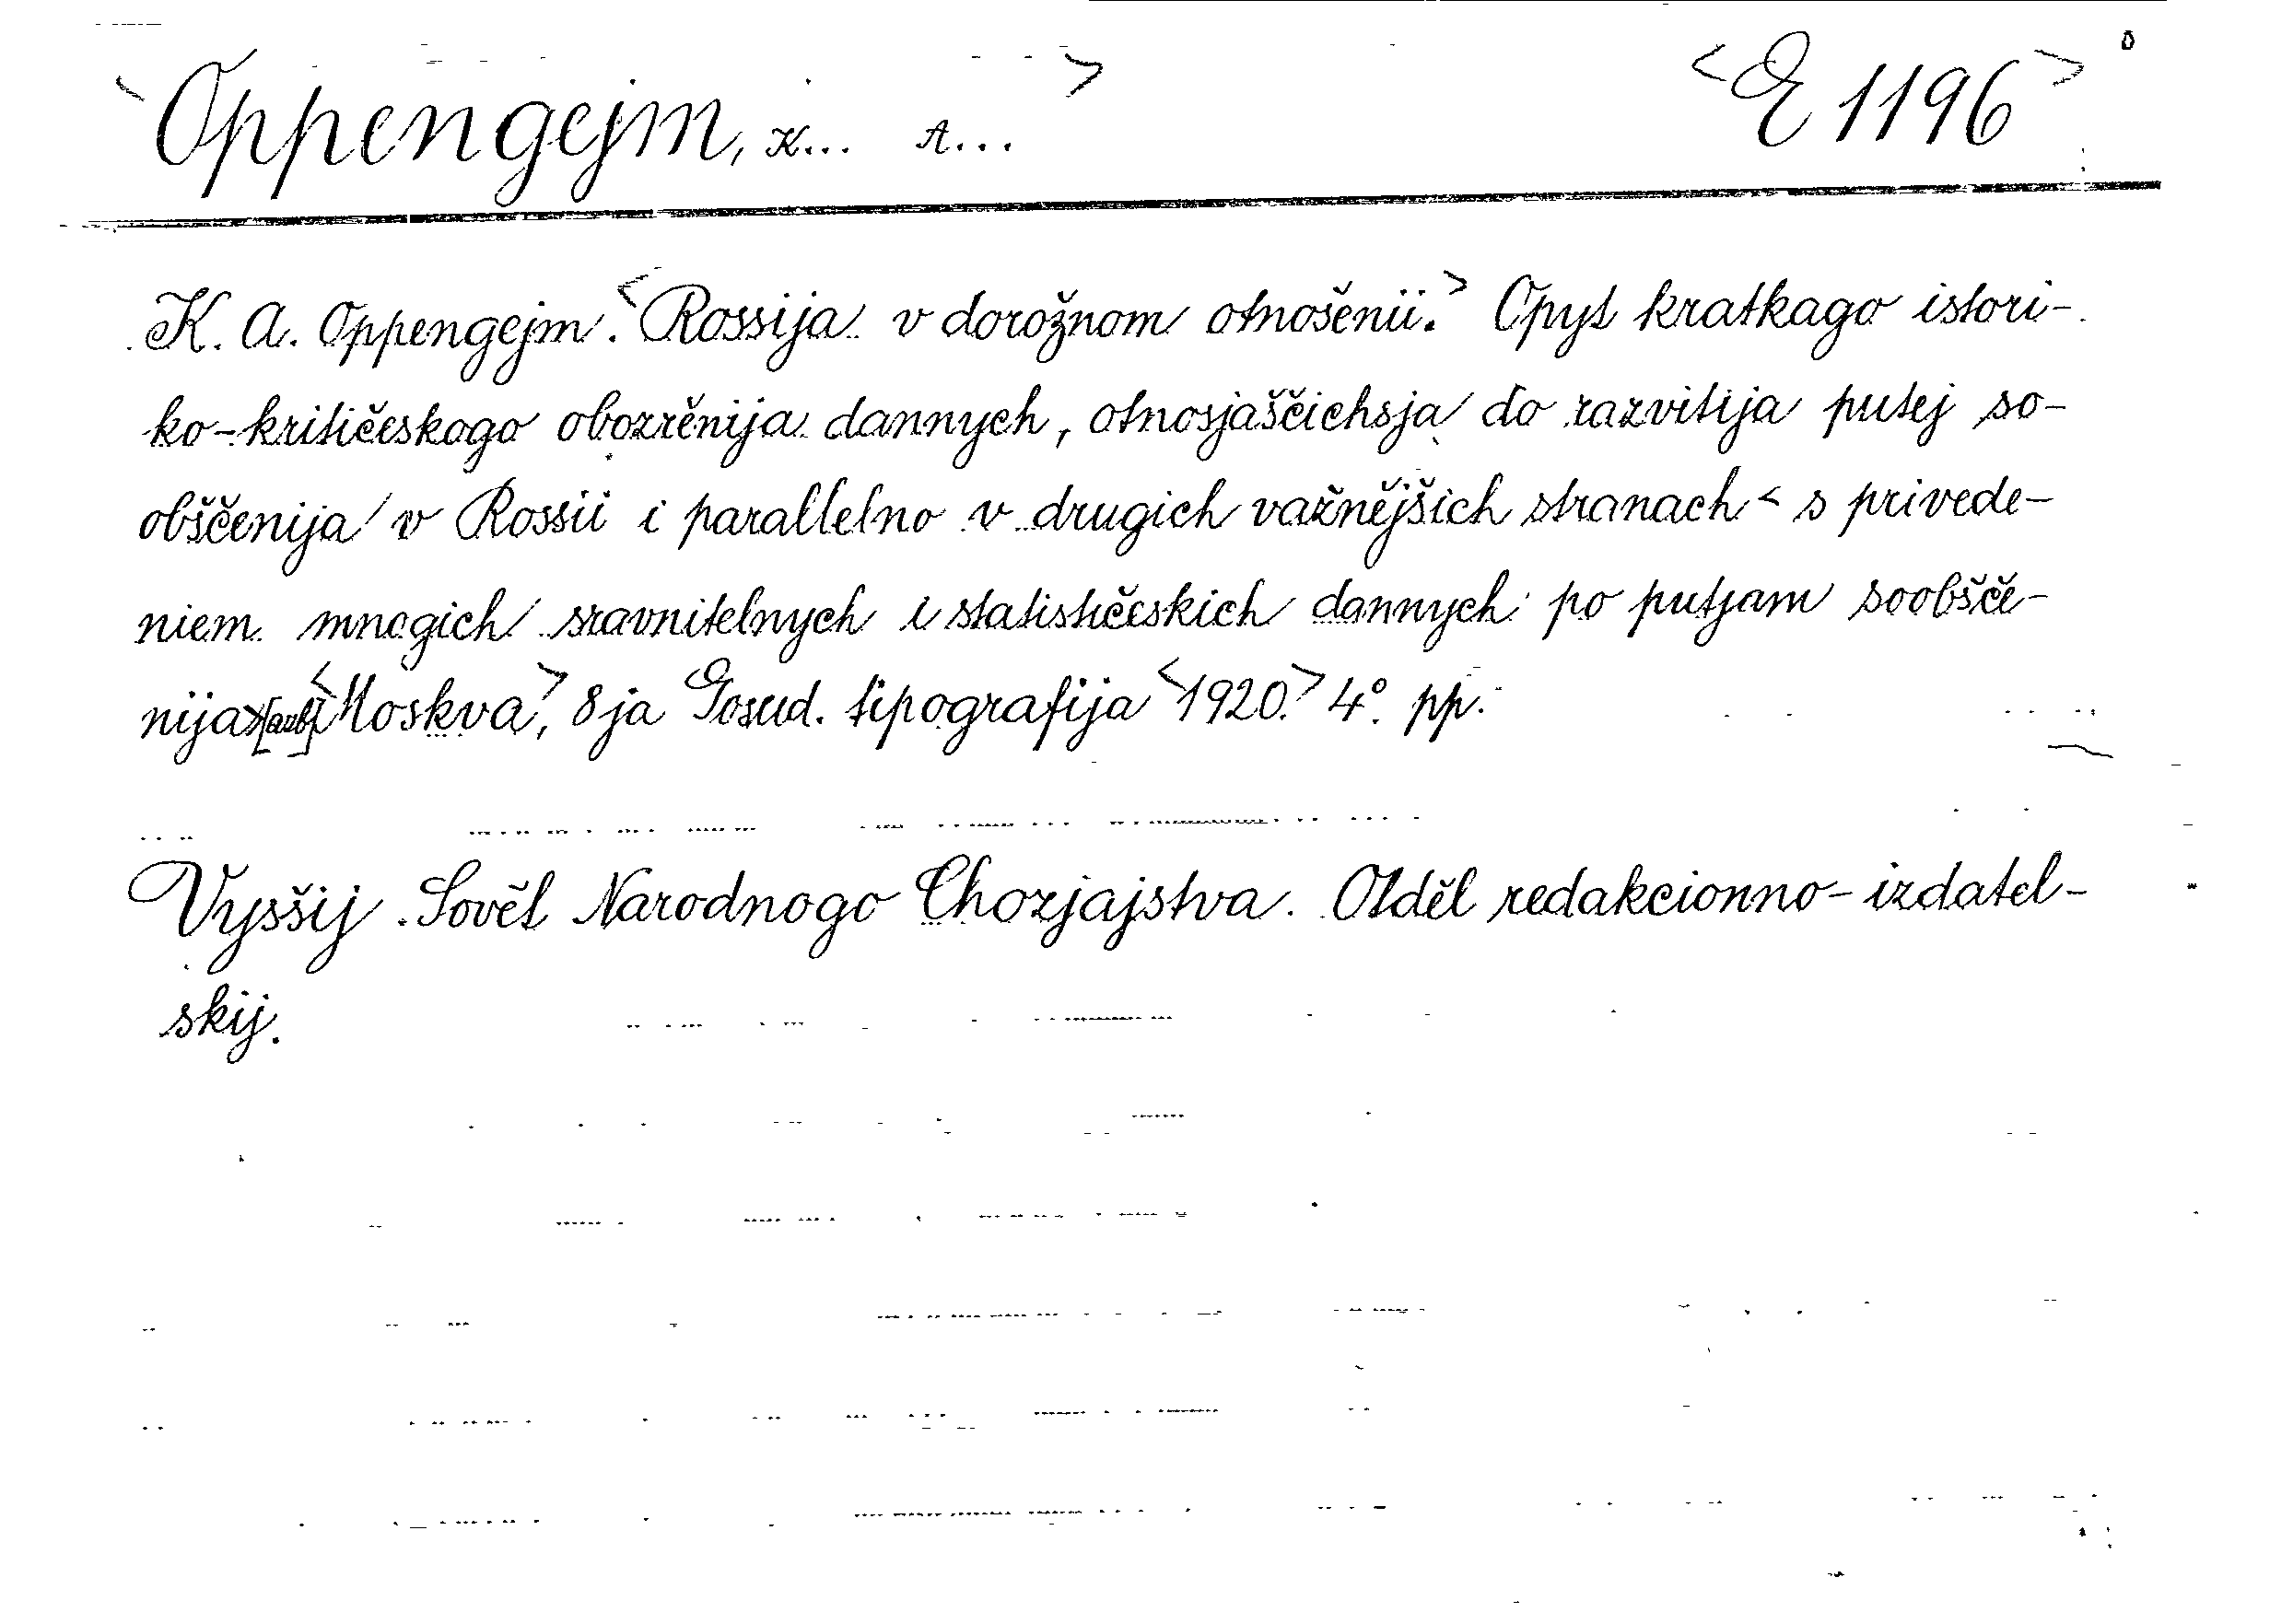 <Oppengejm, K... A...> <E 1196>
K. A. Oppengejm. <Rossija v dorožnom otnošenii.> Opyt kratkago istori-
ko-kritičeskogo obozrěnija dannych, otnosjaščichsja do razvitija putej so-
obščenija v Rossii i parallelno v drugich važnějšich stranach < s privede-
niem mnogich sravnitelnych i statističeskich dannych po putjam soobšče-
nija> <Moskva>, 8ja Gosud. tipografija <1920.> 4°. pp.
Vysšij Sovět Narodnogo Chozjajstva. Otděl redakcionno-izdatel-
skij.